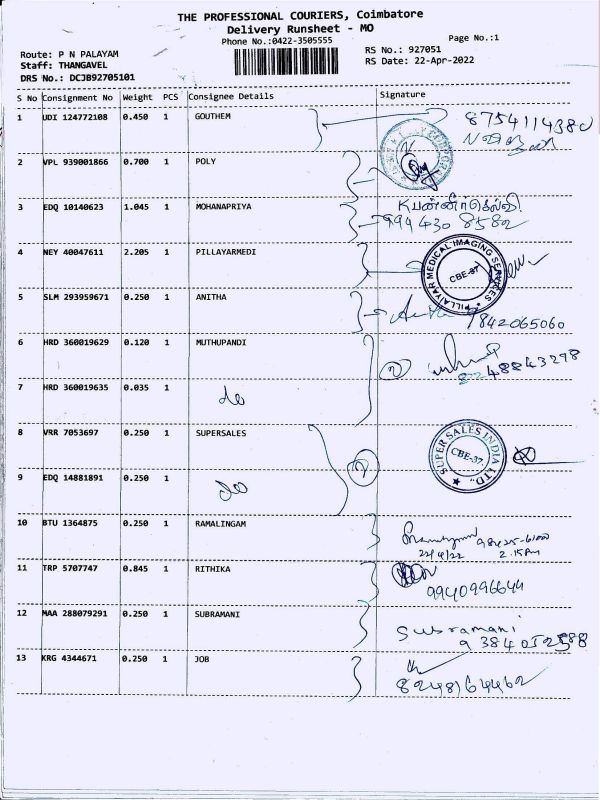 THE PROFESSIONAL COURIERS, Coimbatore
Delivery Runsheet - MO
Phone No.:0422-3505555
Page No.:1
Route: P N PALAYAM
Staff: THANGAVEL
DRS No.: DCJB92705101
RS No.: 927051
RS Date: 22-Apr-2022
S No Consignment No Weight PCS Consignee Details Signature
1 UDI 124772108 0.450 1 GOUTHEM 8754114380
2 VPL 939001866 0.700 1 POLY
3 EDQ 10140623 1.045 1 MOHANAPRIYA
994430 8582
4 NEY 40047611 2.205 1 PILLAYARMEDI
PILLAIYAR MEDICAL IMAGING SERVICES CBE-37
5 SLM 293959671 0.250 1 ANITHA
9842065060
6 HRD 360019629 0.120 1 MUTHUPANDI 2
8248843298
7 HRD 360019635 0.035 1 do
8 VRR 7053697 0.250 1 SUPERSALES
SUPER SALES INDIA LTD CBE-37.
9 EDQ 14881891 0.250 1 do 2
10 BTU 1364875 0.250 1 RAMALINGAM
22/4/22 2.15pm
11 TRP 5707747 0.845 1 RITHIKA
9940996644
12 MAA 288079291 0.250 1 SUBRAMANI Subramani
9384052588
13 KRG 4344671 0.250 1 JOB
8248164462